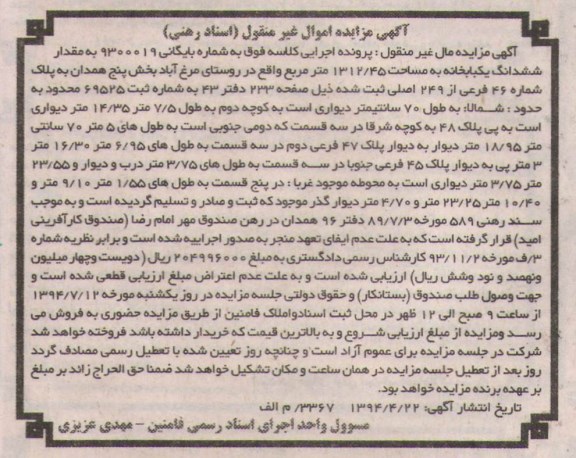 آگهی مزایده اموال غیر منقول (اسناد رهنی)
آگهی مزایده مال غیر منقول : پرونده اجرایی کلاسه فوق به شماره بایگانی ۹۳۰۰۰۱۹ به مقدار
ششدانگ یکبابخانه به مساحت ۱۳۱۲/۴۵ متر مربع واقع در روستای مرغ آباد بخش پنج همدان به پلاک
شماره ۴۶ فرعی از ۲۴۹ اصلی ثبت شده ذیل صفحه ۲۳۳ دفتر ۴۳ به شماره ثبت ۶۹۵۲۵ محدود به
حدود : شمالا: به طول ۷۰ سانتیمتر دیواری است به کوچه دوم به طول ۷/۵ متر ۱۴/۳۵ متر دیواری
است به پی پلاک ۴۸ به کوچه شرقا در سه قسمت که دومی جنوبی است به طول های ۵ متر ۷۰ سانتی
متر ۱۸/۹۵ متر دیوار به دیوار پلاک ۴۷ فرعی دوم در سه قسمت به طول های ۶/۹۵ متر ۱۶/۳۰ متر
۳ متر پی به دیوار پلاک ۴۵ فرعی جنوبا در سه قسمت به طول های ۳/۷۵ متر درب و دیوار و ۲۳/۵۵
متر ۳/۷۵ متر دیواری است به محوطه موجود غربا : در پنج قسمت به طول های ۱/۵۵ متر ۹/۱۰ متر و
۱۰/۴۰ متر ۲۳/۲۵ متر و ۴/۷۰ متر دیوار گذر موجود که ثبت و صادر و تسلیم گردیده است و به موجب
سند رهنی ۵۸۹ مورخه ۸۹/۷/۳ دفتر ۹۶ همدان در رهن صندوق مهر امام رضا (صندوق کارآفرینی
امید) قرار گرفته است که به علت عدم ایفای تعهد منجر به صدور اجراییه شده است و برابر نظریه شماره
۳/ف مورخه ۹۳/۱۱/۲ کارشناس رسمی دادگستری به مبلغ ۲۰۴۹۹۶۰۰۰ ریال (دویست وچهار میلیون
ونهصد و نود وشش ریال) ارزیابی شده است و به علت عدم اعتراض مبلغ ارزیابی قطعی شده است و
جهت وصول طلب صندوق (بستانکار) و حقوق دولتی جلسه مزایده در روز یکشنبه مورخه ۱۳۹۴/۷/۱۲
از ساعت ۹ صبح الی ۱۲ ظهر در محل ثبت اسنادواملاک فامنین از طریق مزایده حضوری به فروش می
رسد ومزایده از مبلغ ارزیابی شروع و به بالاترین قیمت که خریدار داشته باشد فروخته خواهد شد
شرکت در جلسه مزایده برای عموم آزاد است و چنانچه روز تعیین شده با تعطیل رسمی مصادف گردد
روز بعد از تعطیل جلسه مزایده در همان ساعت و مکان تشکیل خواهد شد ضمنا حق الحراج زاند بر مبلغ
بر عهده برنده مزایده خواهد بود.
تاریخ انتشار آگهی: ۱۳۹۴/۴/۲۲ ۳۳۶۷/ م الف
مسوول واحد اجرای اسناد رسمی فامنین - مهدی عزیزی